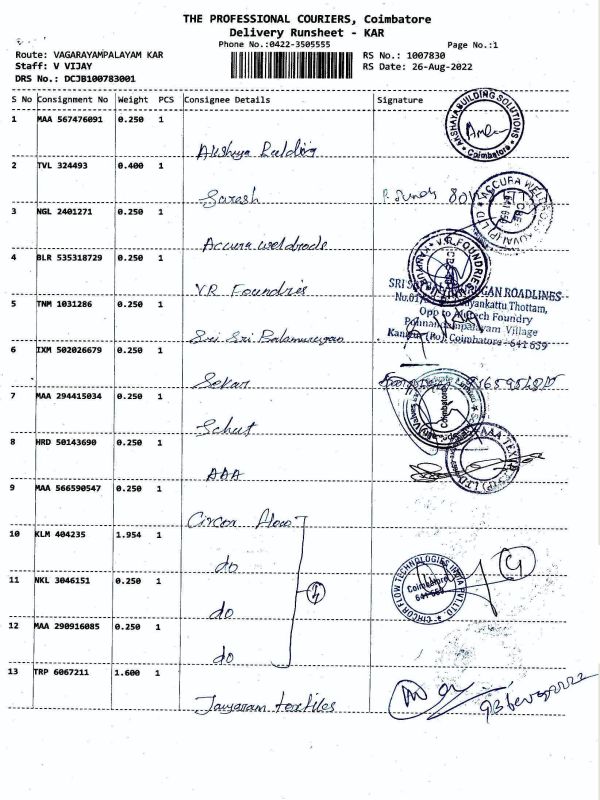 THE PROFESSIONAL COURIERS, Coimbatore
Delivery Runsheet - KAR
Phone No.:0422-3505555
Page No.:1
Route: VAGARAYAMPALAYAM KAR
RS No.: 1007830
Staff: V VIJAY
RS Date: 26-Aug-2022
DRS No.: DCJB100783001
S No Consignment No Weight PCS Consignee Details Signature
1 MAA 567476091 0.250 1
AKSHAYA BUILDING SOLUTIONS
* Coimbatore *
2 TVL 324493 0.400 1
Suresh
3 NGL 2401271 0.250 1
ACCURA WELDRODS KOVAI (P) LTD
Accura weldrode
4 BLR 535318729 0.250 1
V.R. FOUNDRIES
V.R Foundries
5 TNM 1031286 0.250 1
ROADLINES
Opp to
Foundry
Village
Coimbatore - 641 659
Sri Sri Balamurugan
6 IXM 502026679 0.250 1
Sekar
7 MAA 294415034 0.250 1
Coimbatore
8 HRD 50143690 0.250 1
AAA
9 MAA 566590547 0.250 1
Circor Flow
10 KLM 404235 1.954 1
do
CIRCOR FLOW TECHNOLOGIES INDIA PVT LTD
Coimbatore
11 NKL 3046151 0.250 1
do
4
12 MAA 290916085 0.250 1
do
13 TRP 6067211 1.600 1
textiles